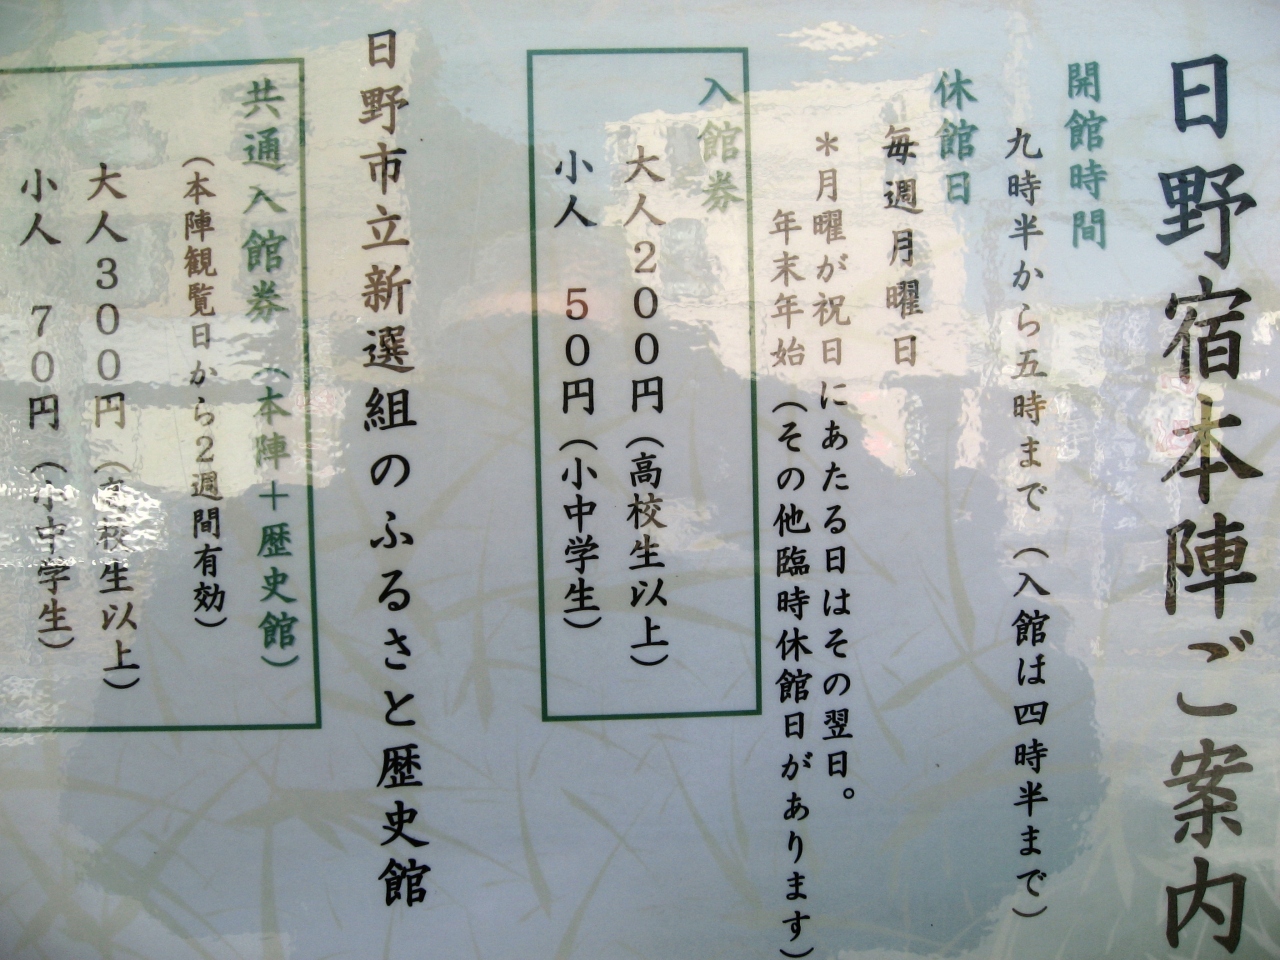 日野宿本陣ご案内
開館時間
九時半から五時まで（入館は四時半まで）
休館日
毎週月曜日
＊月曜が祝日にあたる日はその翌日。
年末年始（その他臨時休館日があります）
入館券
大人200円（高校生以上）
小人 50円（小中学生）
日野市立新選組のふるさと歴史館
共通入館券（本陣＋歴史館）
（本陣観覧日から2週間有効）
大人300円（高校生以上）
小人 70円（小中学生）